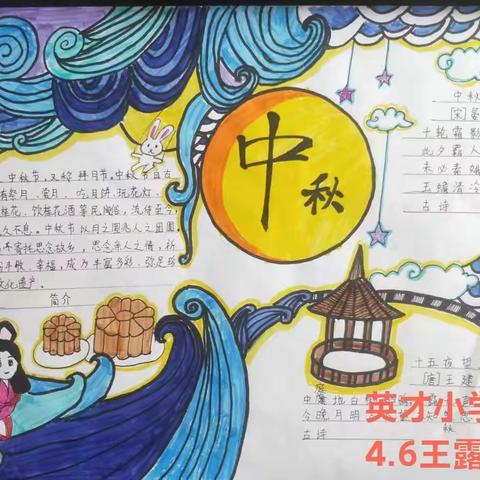 中秋
中秋节,又称拜月节,中秋节自古
有祭月、赏月、吃月饼、玩花灯、
桂花、饮桂花酒等民俗,流传至今,
久不息。中秋节以月之圆兆人之团圆,
寄托思念故乡,思念亲人之情,祈
丰收、幸福,成为丰富多彩、弥足珍
文化遗产。
简介
中秋
[宋]晏
十轮霜影
此夕羁人
未必素娥
玉蟾清冷
古诗
十五夜望
[唐]王建
中庭地白
今晚月明
古诗
英才小学
4.6王露